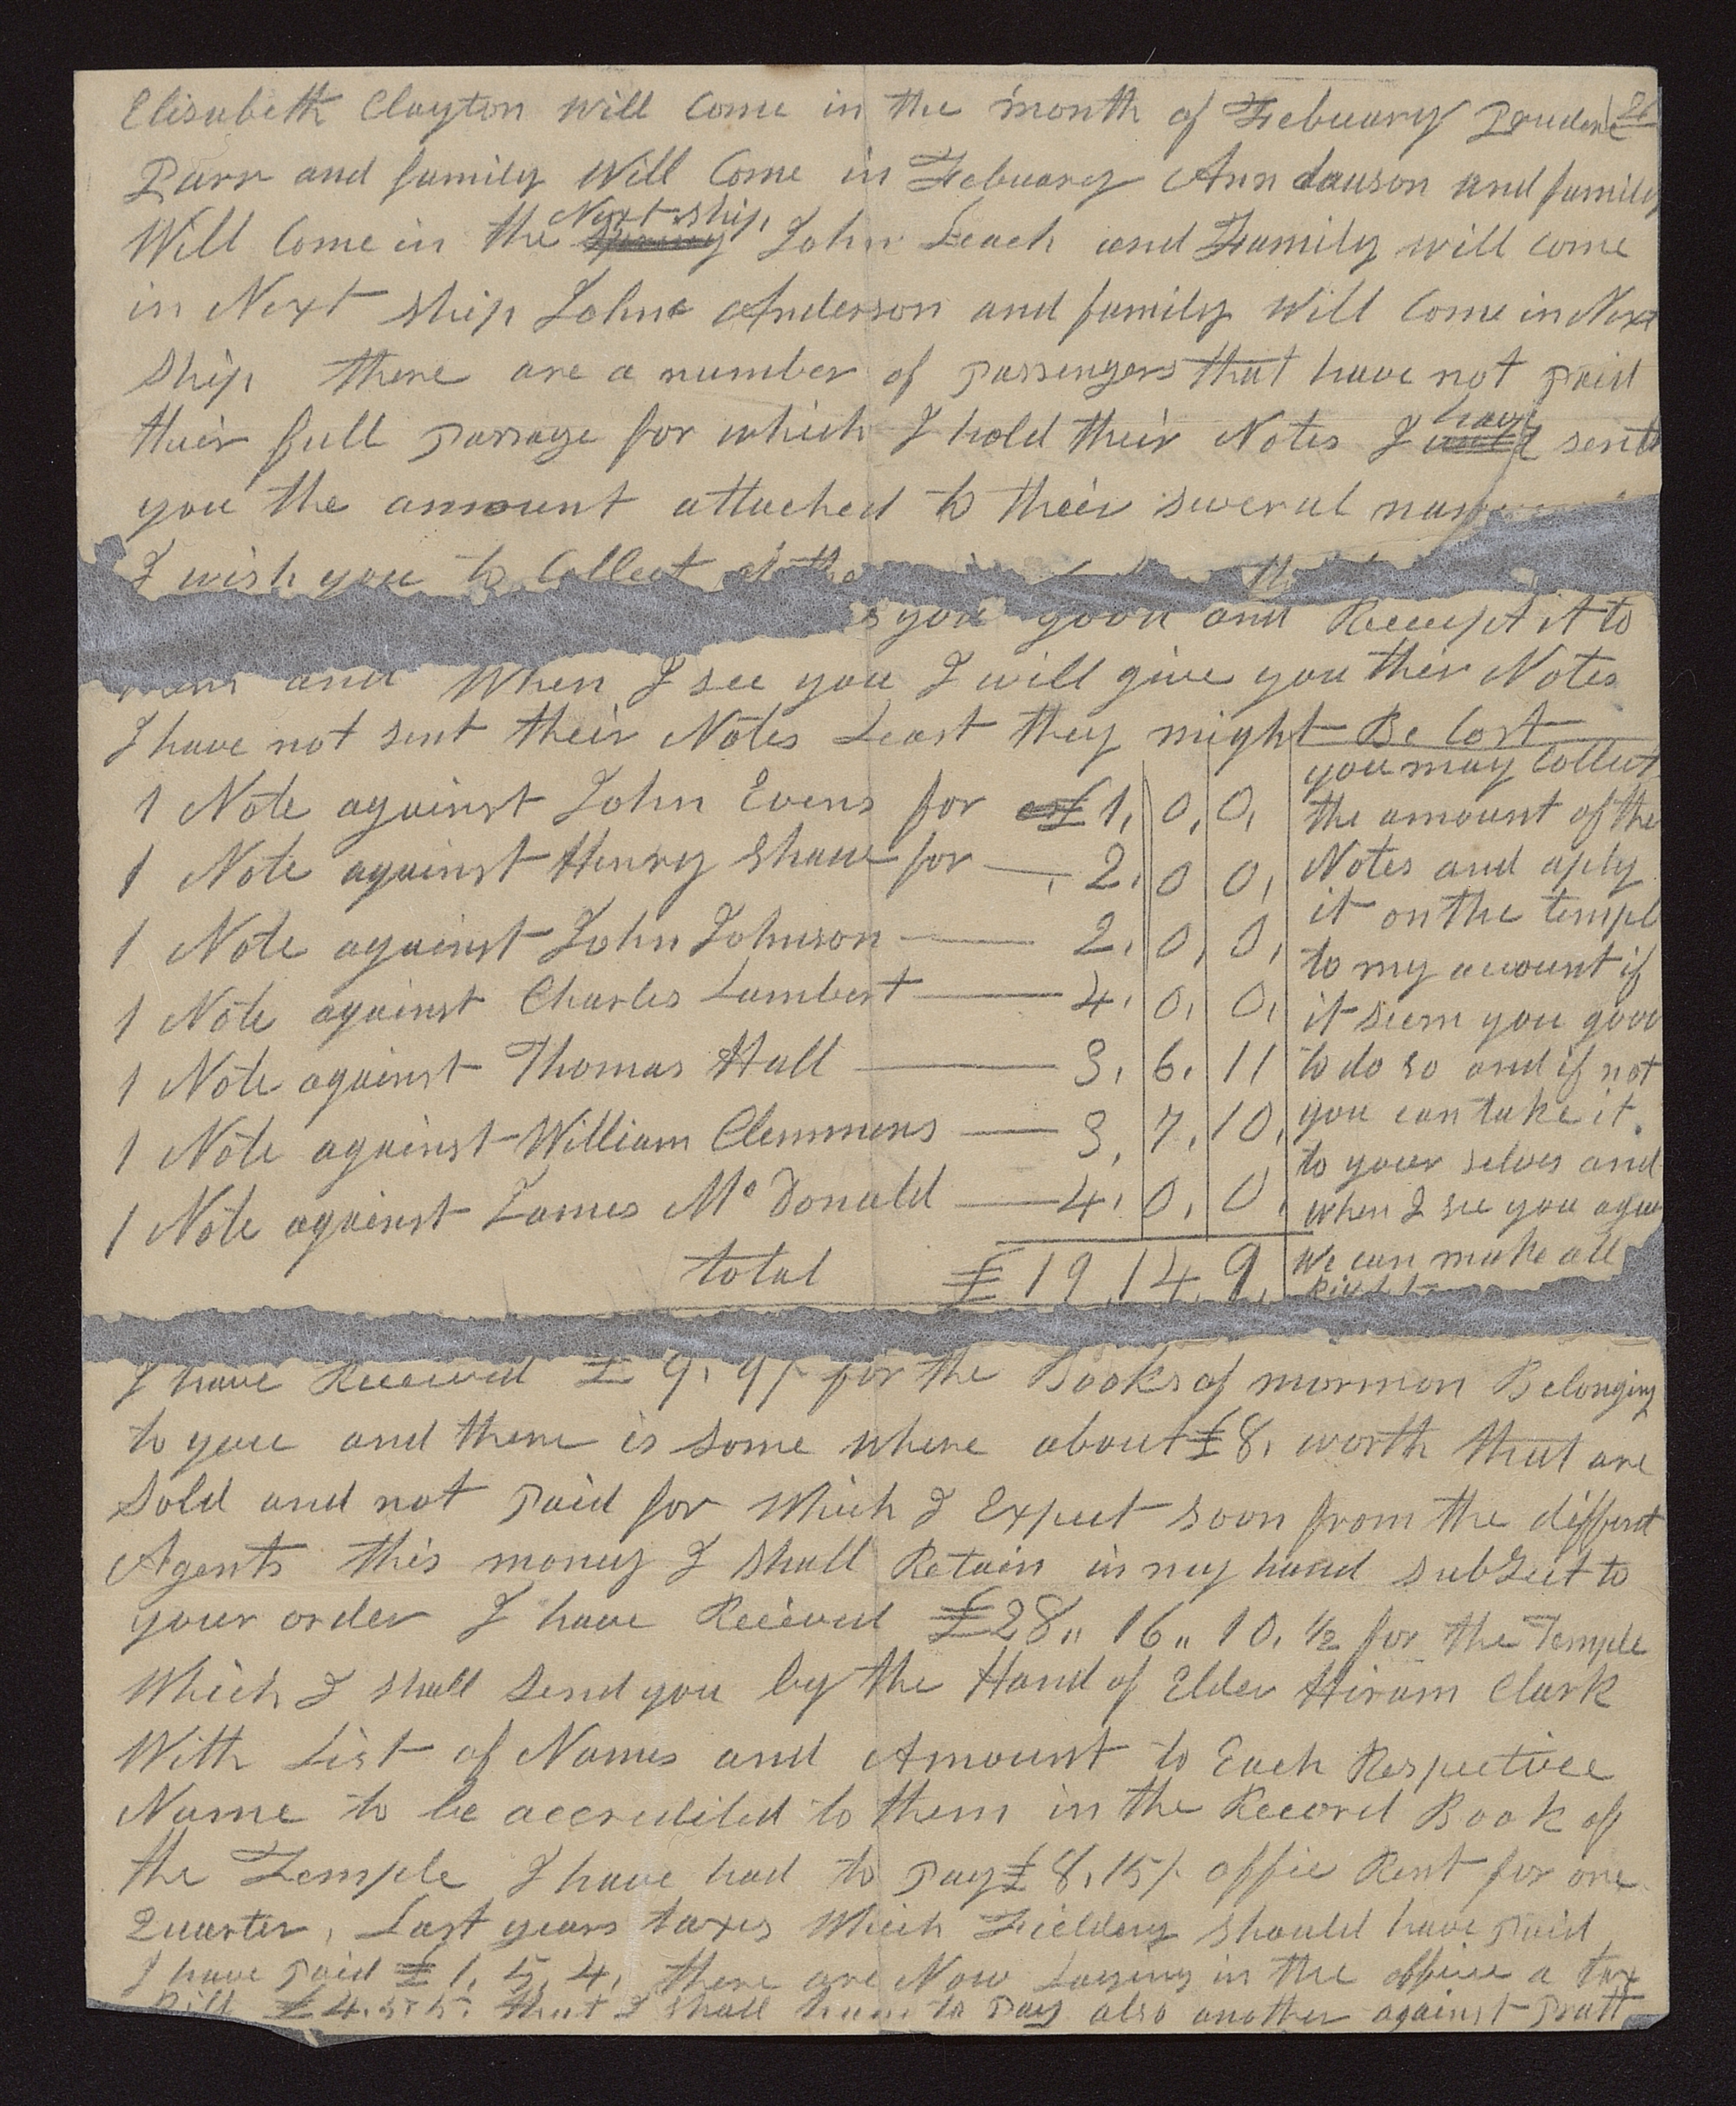 Elisabeth Clayton will Come in the month of Febuary Prudenc
Parr and family Will Come in Febuary Ann dauson and family
Next ship,
Will Come in the John Leach and Family will come
in Next ship John Anderson and family Will Come in Next
Ship there are a number of passengers that have not paid
have
their full passage for which I hold their Notes I sent
you the amount attached to their several
I wish you to Collect
you good and Receipt it to
and When I see you I will give you ther Notes
I have not sent their Notes Least they might Be Lost
1 Note against John Evens for £ 1, 0, 0,
1 Note against Henry Shaw for — 2, 0 0,
1 Note against John Johnson — 2, 0, 0,
1 Note against Charles Lambert — 4, 0, 0,
1 Note against Thomas Hall — 3, 6, 11
1 Note against William Clemmens — 3, 7, 10,
1 Note against James Mc Donald — 4, 0, 0,
total £ 19, 14, 9,
you may Collect
the amount of the
Notes and aply
it on the templ
to my account if
it seem you good
to do so and if not
you can take it.
to your selves and
when I see you again
we can make all
Right
I have Received £ 9, 9/- for the Books of mormon Belonging
to you and there is some where about £8, worth that are
Sold and not paid for Which I Expect soon from the diffrent
Agents this money I shall Retain in my hand subJect to
your order I have Recieved £28,, 16,, 10, ½ for the Temple
Which I shall Send you by the Hand of Elder Hiram Clark
With List of Names and Amount to Each Respective
Name to be accredited to them in the Record Book of
the Temple I have had to pay £ 8, 15/- offie Rent for one
Quarter, Last years taxes Which Fielding should have paid
I have paid £ 1, 5, 4, there are Now Laying in the office a tax
Bill £ 4. 5. that I shall have to Pay also another against Pratt